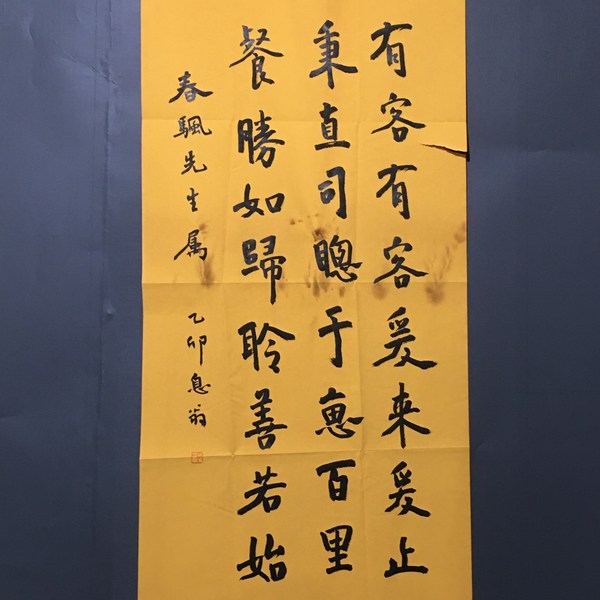 有客有客爰来爰止
秉直司聰于惠百里
餐勝如歸聆善若始
春颿先生属 乙卯息翁